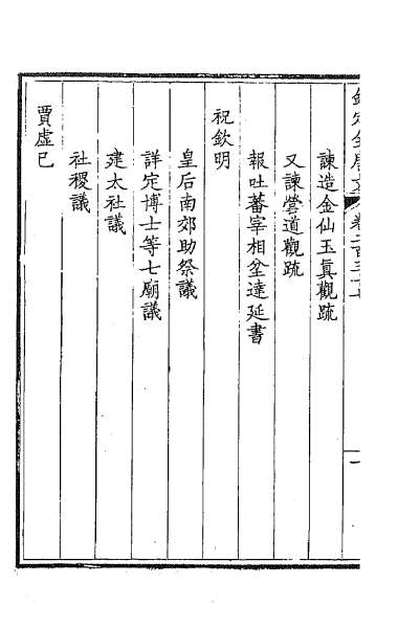 欽定全唐文 卷二百三十七 一
諫造金仙玉眞觀疏
又諫營道觀疏
報吐蕃宰相坌達延書
祝欽明
皇后南郊助祭議
詳定博士等七廟議
建太社議
社稷議
賈虛己